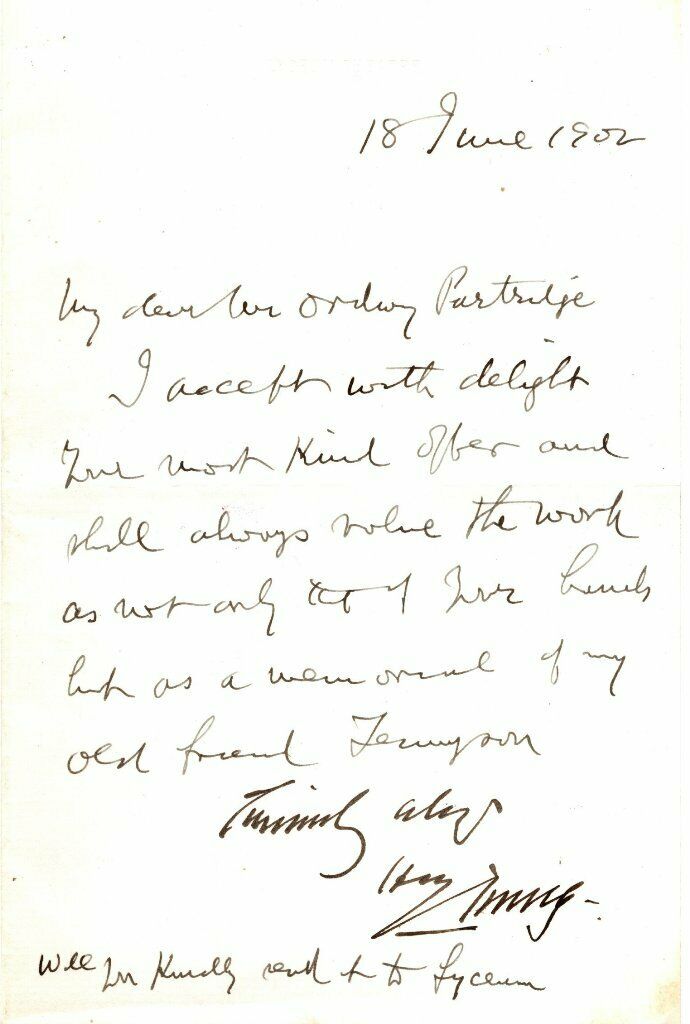 18 June 1902
My dear Mr Ordway Partridge
I accept with delight
Your most kind offer and
shall always value the work
as not only of Your hands
but as a memorial of my
old friend Tennyson
always
Henry Irving
Will You Kindly send it to Lyceum